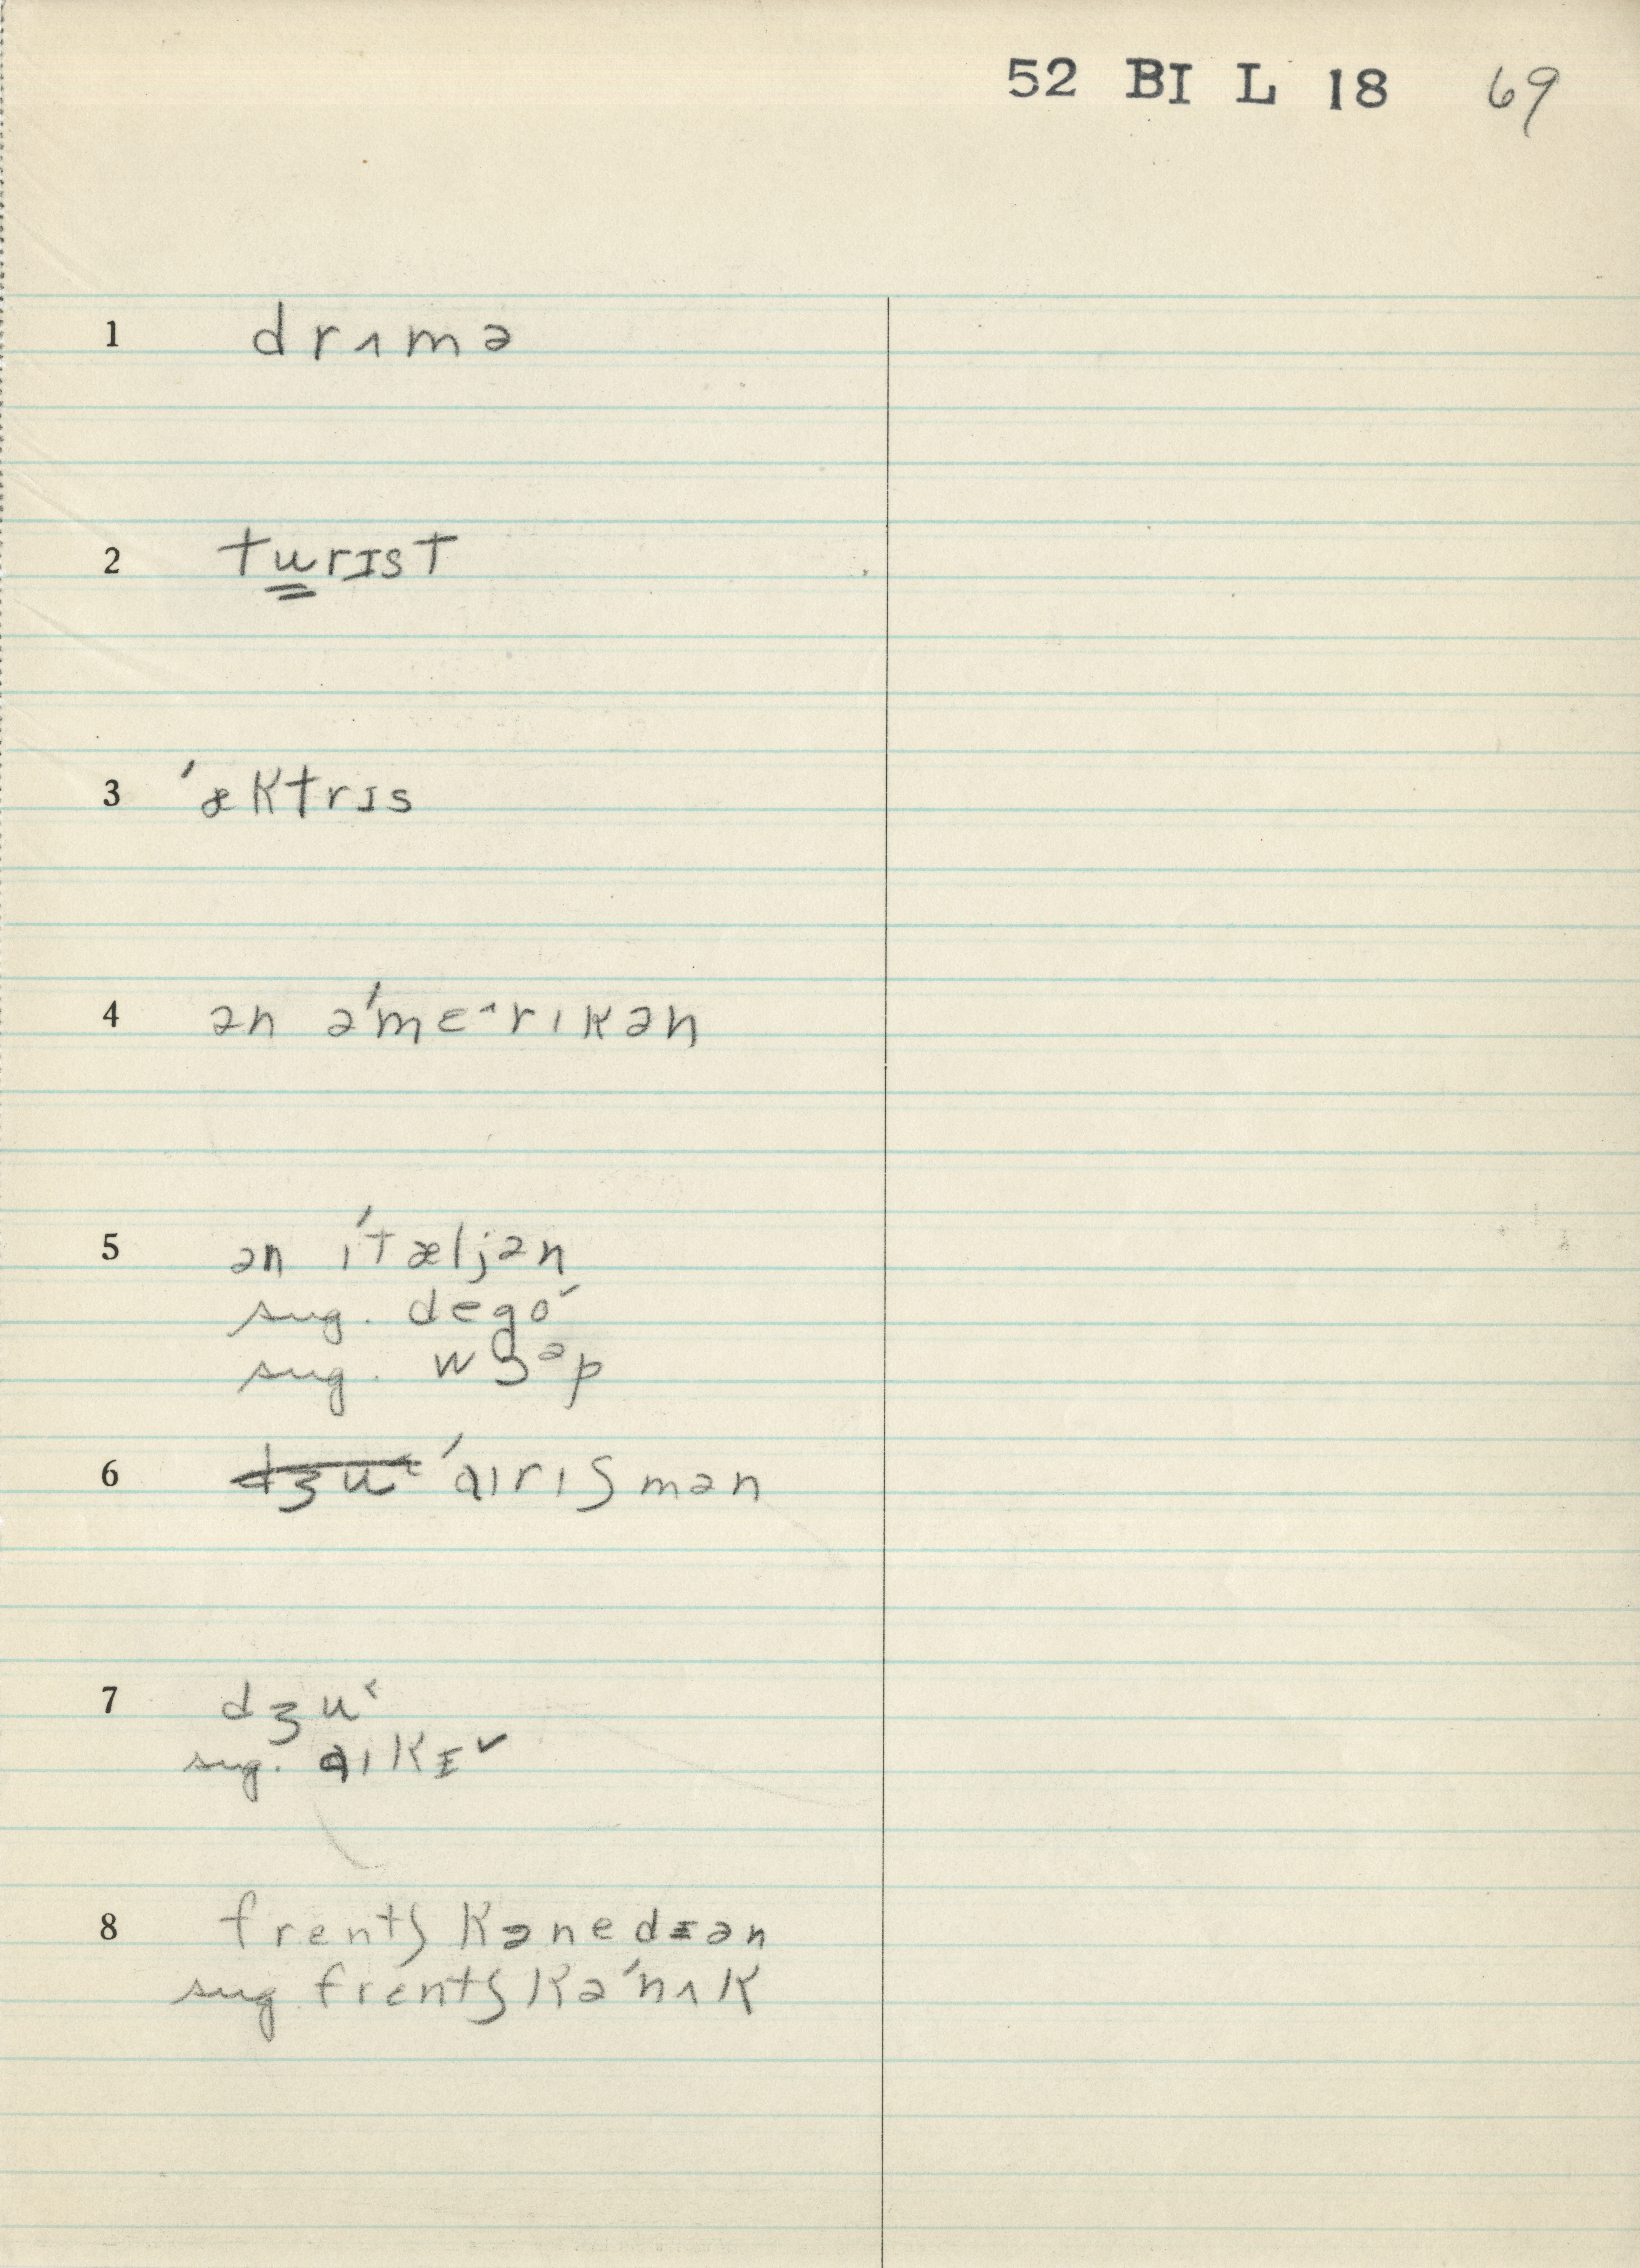 52 BI L 18 69
1 drʌmə
2 turɪst
3 ˈæktrɪs
4 ən əˈmɛ˄rɪkən
5 ən ɪˈtæljən
sug. dego˅
sug. wɔᵊp
6 ~~dʒu˂~~ ˈaɪrɪʃmən
7 dʒu˂
sug. aɪkɪ˅
8 frentʃ kənedɪən
sug frentʃ kəˈnʌk